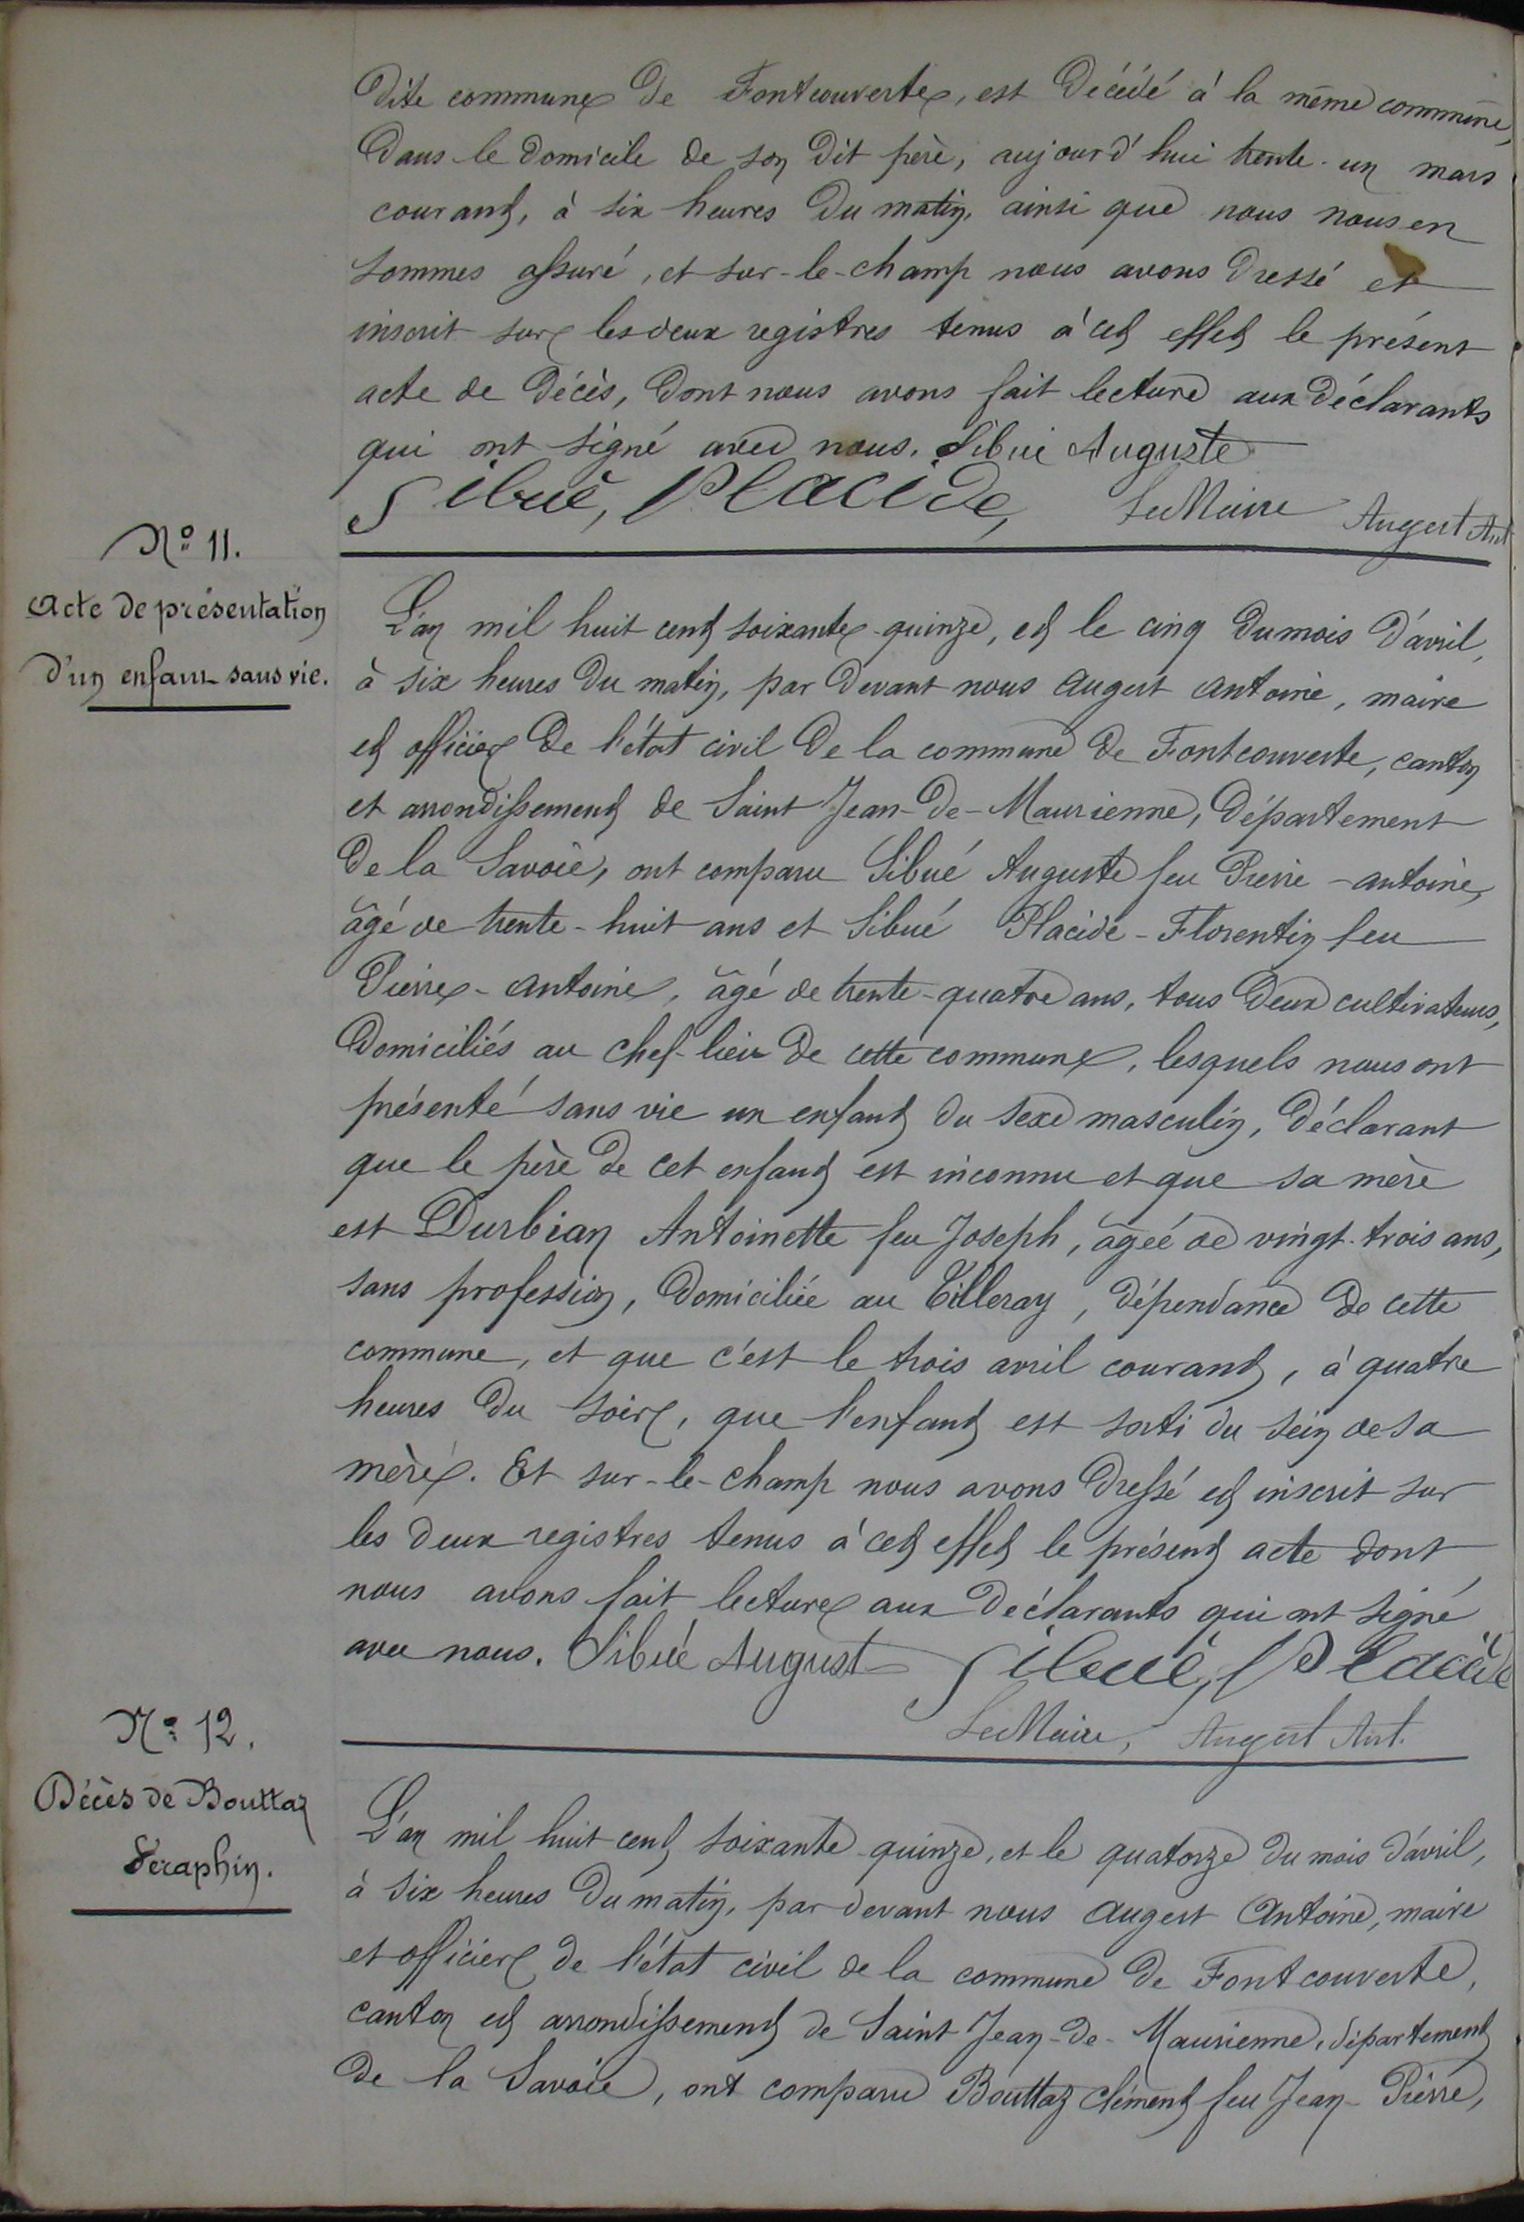 dite commune de Fontcouverte, est décédé à la même commune,
dans le domicile de son dit père, aujourd'hui trente-un mars
courant, à six heures du matin, ainsi que nous nous en
sommes assuré, et sur-le-champ nous avons dressé et
inscrit sur les deux registres tenus à cet effet le présent
acte de décès, dont nous avons fait lecture aux déclarants
qui ont signé avec nous. Sibué Auguste
Sibué, Placide, Le Maire Augert Ant
N° 11.
Acte de présentation
d'un enfant sans vie.
L'an mil huit cent soixante-quinze, et le cinq du mois d'avril,
à six heures du matin, par devant nous Augert Antoine, maire
et officier de l'état civil de la commune de Fontcouverte, canton
et arrondissement de Saint Jean-de-Maurienne, département
de la Savoie, ont comparu Sibué Auguste feu Pierre-antoine,
âgé de trente-huit ans et Sibué Placide-Florentin feu
Pierre-Antoine, âgé de trente-quatre ans, tous deux cultivateurs,
domiciliés au chef-lieu de cette commune, lesquels nous ont
présenté sans vie un enfant du sexe masculin, déclarant
que le père de cet enfant est inconnu et que sa mère
est Durbian Antoinette feu Joseph, âgée de vingt-trois ans,
sans profession, domiciliée au Tilleray, dépendance de cette
commune, et que c'est le trois avril courant, à quatre
heures du soir, que l'enfant est sorti du sein de sa
mère. Et sur-le-champ nous avons dressé et inscrit sur
les deux registres tenus à cet effet le présent acte dont
nous avons fait lecture aux déclarants qui ont signé
avec nous. Sibué August Sibué, Placide
Le Maire, Augert Ant.
N° 12.
Décès de Bouttaz
Séraphin.
L'an mil huit cent soixante-quinze, et le quatorze du mois d'avril,
à six heures du matin, par devant nous Augert Antoine, maire
et officier de l'état civil de la commune de Fontcouverte,
canton et arrondissement de Saint Jean-de-Maurienne, département
de la Savoie, ont comparu Bouttaz Clément feu Jean-Pierre,